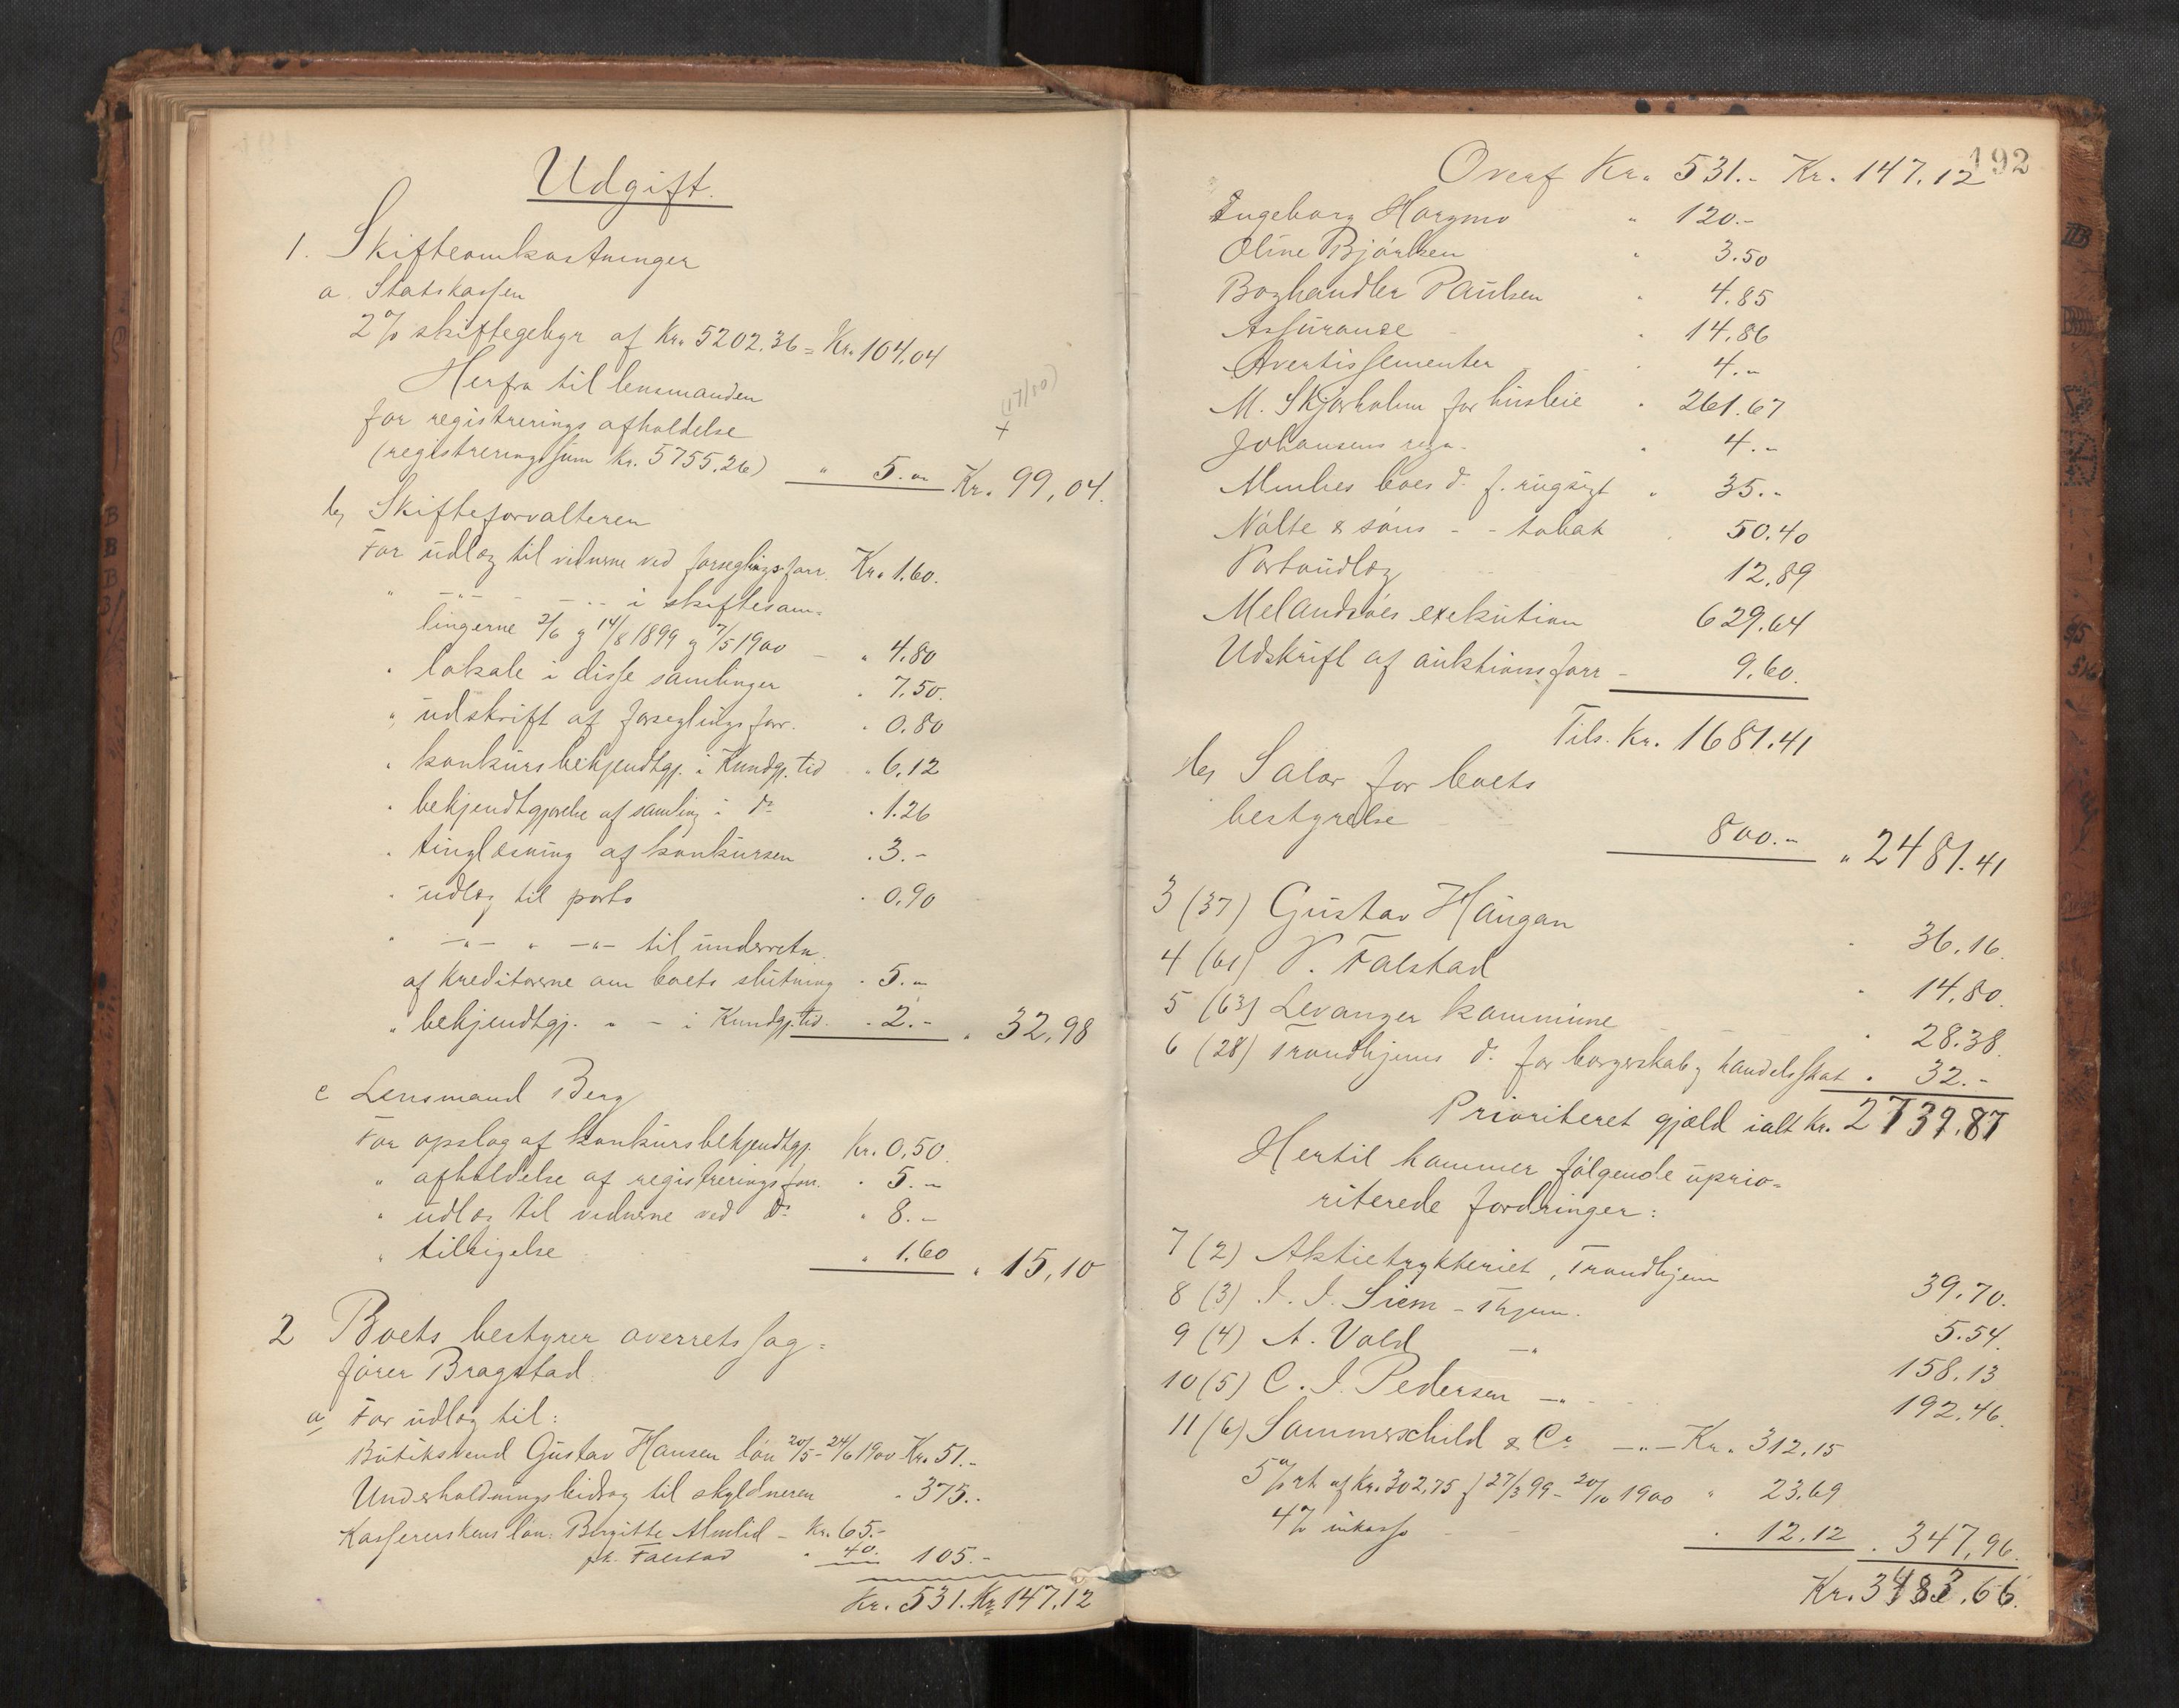 Udgift.
1. Skifteomkostninger
a. Statskassen
2% skiftegebyr af Kr. 5202.36 = Kr. 104.04
Herfra til lensmanden
for registrerings afholdelse
(registreringssum Kr. 5755.26) " 5.- Kr. 99,04.
b, Skifteforvalteren
For udlæg til vidnerne ved forseglingsforr. Kr. 1.60.
" -"- - -.. i skiftesam-
lingerne 2/6 g 14/8 1899 g 7/5 1900 - " 4.80
" lokale i disse samlinger . 7.50.
" udskrift af forseglingsforr. . 0.80
" konkursbekjendtgj. i Kundgj.tid . 6.12
" bekjendtgjørelse af samling i do . 1.26
" tinglæsning af konkursen . 3.-
" udlæg til porto . 0.90
" -"- " -"- til underretn.
af kreditorerne om boets slutning . 5.-
" bekjendtgj. " - i Kundgj.tid. . 2.- " 32,98
c Lensmand Berg
For opslag af konkursbekjendtgj. Kr. 0,50.
" afholdelse af registreringsforr. . 5.-
" udlæg til vidnerne ved do " 8.-
" tilsigelse " 1.60 " 15,10
2 Boets bestyrer overretssag-
fører Bragstad.
a, For udlæg til:
Butiksvend Gustav Hansen løn 20/5 - 24/6 1900 Kr. 51.-
Underholdningsbidrag til skyldneren " 375.-
Kassererskens løn: Birgitte Almlid - Kr. 65.-
frk. Falstad " 40. 105.-
Kr. 531. Kr. 147.12
192
Overf Kr. 531.- Kr. 147.12
Ingeborg Hargmo " 120.-
Oline Bjørken " 3.50
Boghandler Paulsen " 4.85
Assurance " 14.86
Avertissementer . 4.-
M. Skjørholm for husleie . 261.67
Johansens regn. . 4.-
Almlies boes do f. rugsigt . 35.-
Nolte & søns - - tobak . 50.40
Portoudlæg 12.89
Melandsøes exekution 629.64
Udskrift af auktionsforr - 9.60.
Tils. Kr. 1681.41
b, Salær for boets
bestyrelse 800.- " 2481.41
3 (37) Gustav Haugan . 36.16.
4 (61) P. Falstad " 14.80.
5 (63) Levanger kommune " 28.38.
6 (28) Trondhjems do for borgerskab g handelsskat . 32.-
Prioriteret gjæld ialt Kr. 2739.87
Hertil kommer følgende uprio-
riterede fordringer:
7 (2) Aktietrykkeriet, Trondhjem 39.70.
8 (3) I. I. Siem - Thjem. 5.54.
9 (4) A. Vold -"- 158.13
10 (5) C. I. Pedersen -"- 192.46.
11 (6) Sommerschild & Co -"- Kr. 312.15
5% rt af Kr. 302.75 f 27/3 99 - 20/10 1900 " 23.69
4% inkasso . 12.12 . 347,96.
Kr. 3483.66.